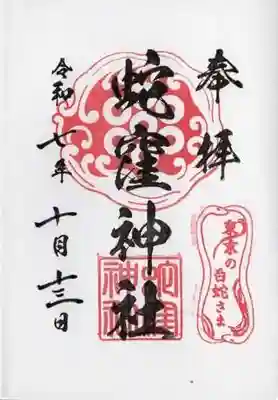 奉拝
蛇窪神社
令和七年 十月十三日
東京の
白蛇さま
蛇窪
神社